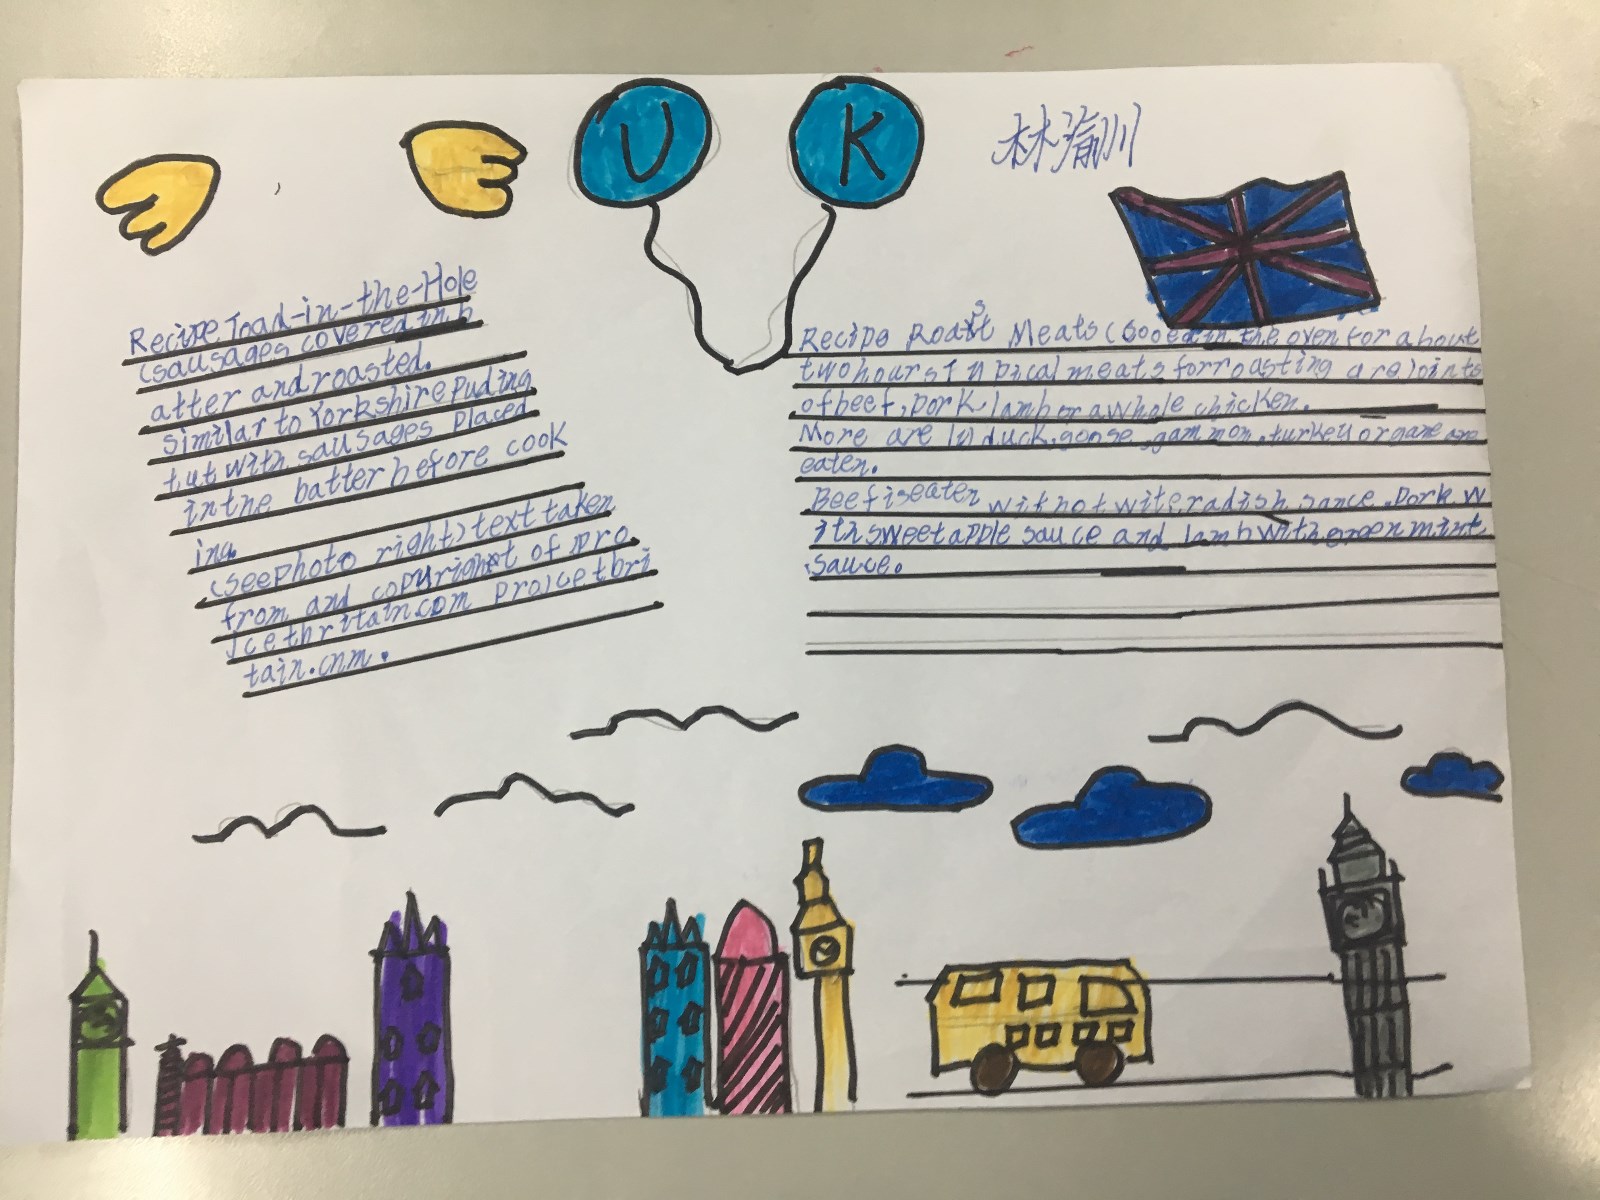 U K
林瀚川
Recipe Toad-in-the-Hole
(sausages covered in b
atter and roasted.
similar to Yorkshire Puding
but with sausages placed
in the batter before cook
ing.
(see photo right) text taken
from and copyright of pro
jcetbritain.com projcetbri
tain.cnm.
Recipe Roast Meats (Cooed in the oven for about
two hours meats for roasting are joints
of beef, pork, lamb or a whole chicken.
More are duck, goose, gammon, turkey or game are
eaten.
Beef is eaten with radish sance. Pork w
ith sweet apple sauce and lamb with green mint
sauce.